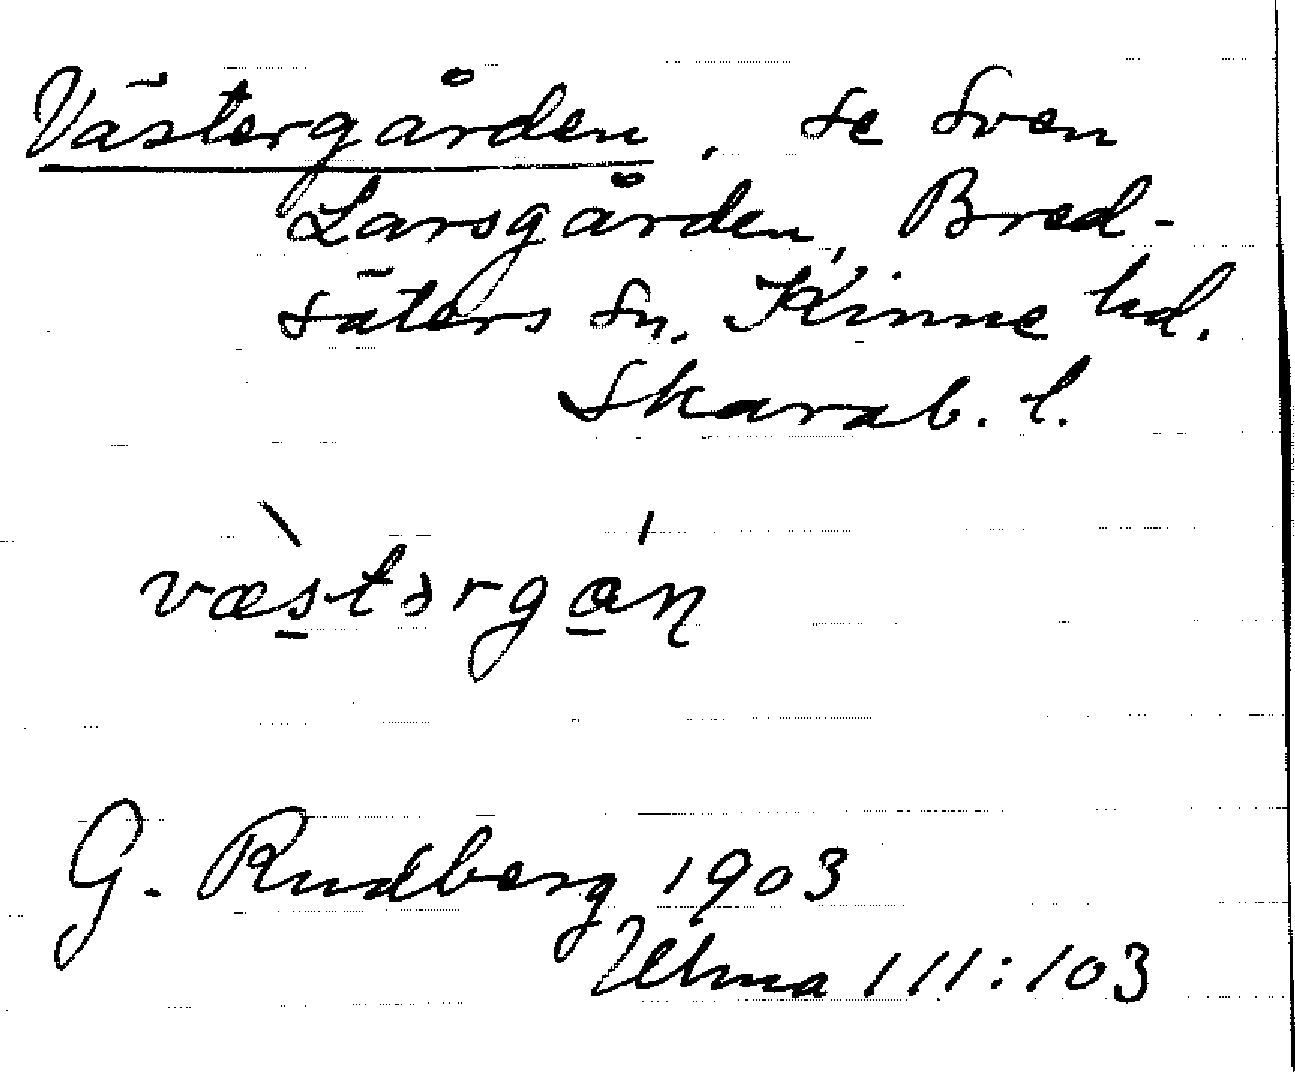 Västergården, se Sven
Larsgården, Bred-
säters sn. Kinne hd.
Skarab. l.
væ̀stərgá̱ɳ
G. Rudberg 1903
Ulma 111:103